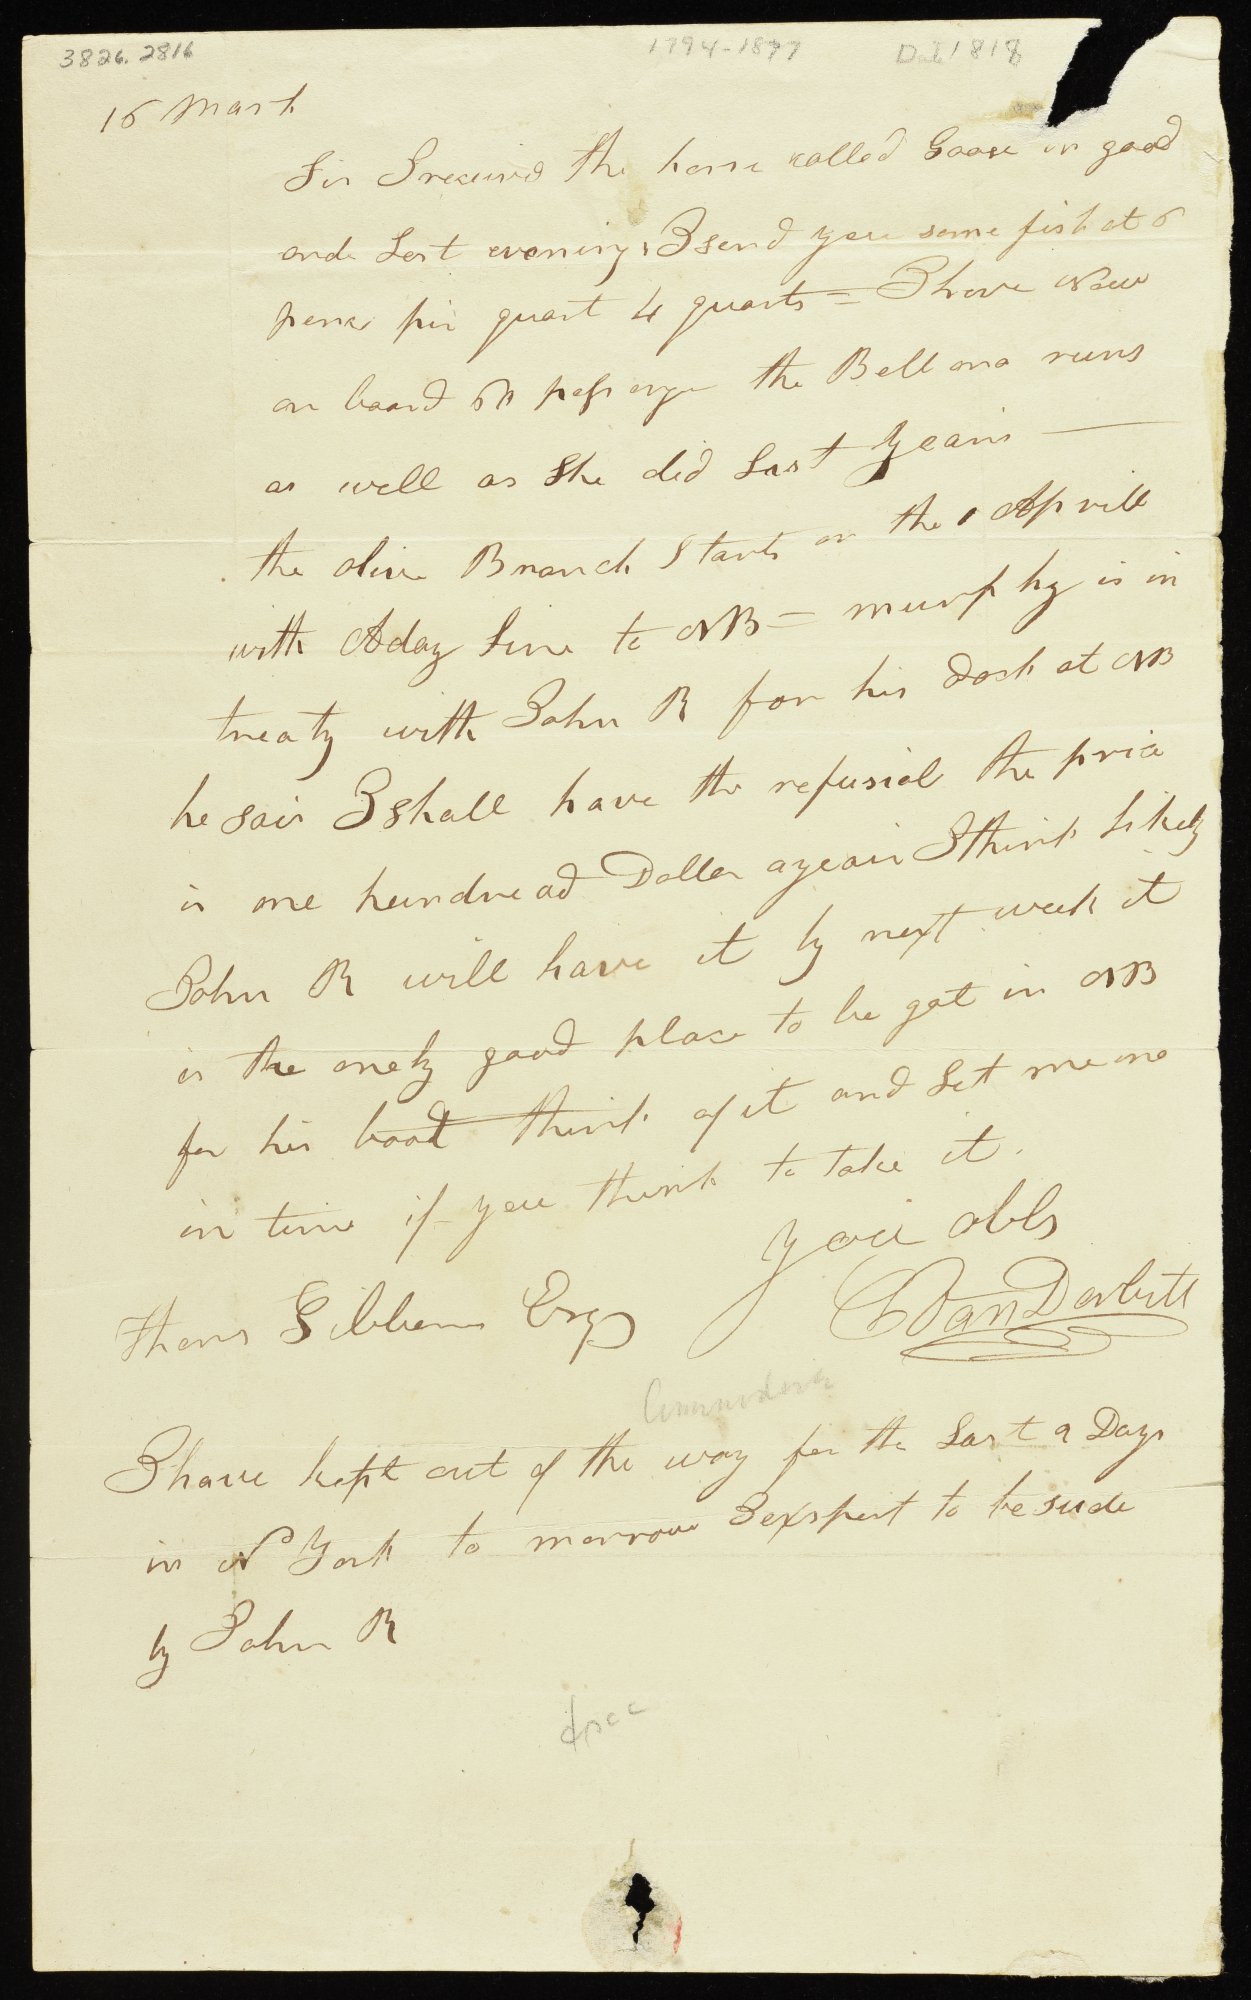 3826.2816 1794-1877 Dat 1818
16 march
Sir I received the horse called Goose in good
orde Last evening I send you some fish at 6
pence pir quart 4 quarts = I have now
on board 60 passenger the Bellona runs
as well as She did Last years —
the olive Branch Starts on the 1 Aprill
with A day Line to NB = murphy is in
treaty with John R for his dock at NB
he sais I shall have the refusial the price
is one hundread Doller a year I think Likely
John R will have it by next week it
is the onely good place to be got in NB
for his boat think of it and Let me no
in time if you think to take it.
your obb
Thoms Gibbons Esqr C VanDerbilt
Commodore
I have kept out of the way for the Last 2 Days
in N York to morrow I exspect to be sude
by John R